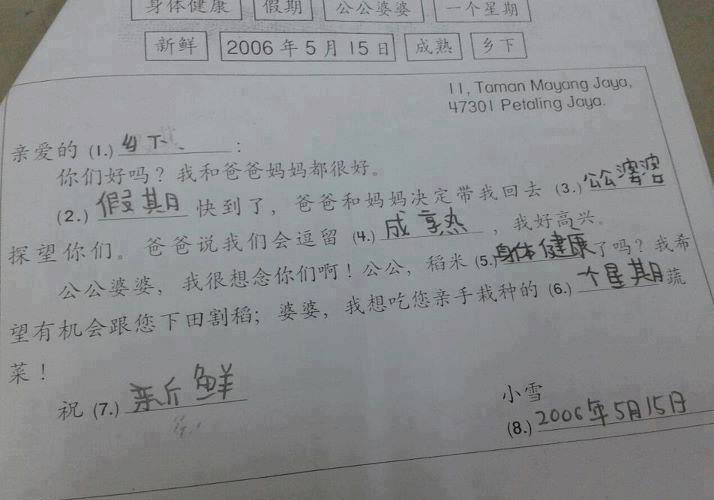 身体健康 假期 公公婆婆 一个星期
新鲜 2006年5月15日 成熟 乡下
11, Taman Mayang Jaya,
47301 Petaling Jaya.
亲爱的 (1.) 乡下、 :
你们好吗？我和爸爸妈妈都很好。
(2.) 假期 快到了，爸爸和妈妈决定带我回去 (3.) 公公婆婆
探望你们。爸爸说我们会逗留 (4.) 成熟 ，我好高兴。
公公婆婆，我很想念你们啊！公公，稻米 (5.) 身体健康 了吗？我希
望有机会跟您下田割稻；婆婆，我想吃您亲手栽种的 (6.) 一个星期 蔬
菜！
祝 (7.) 新鲜
小雪
(8.) 2006年5月15日